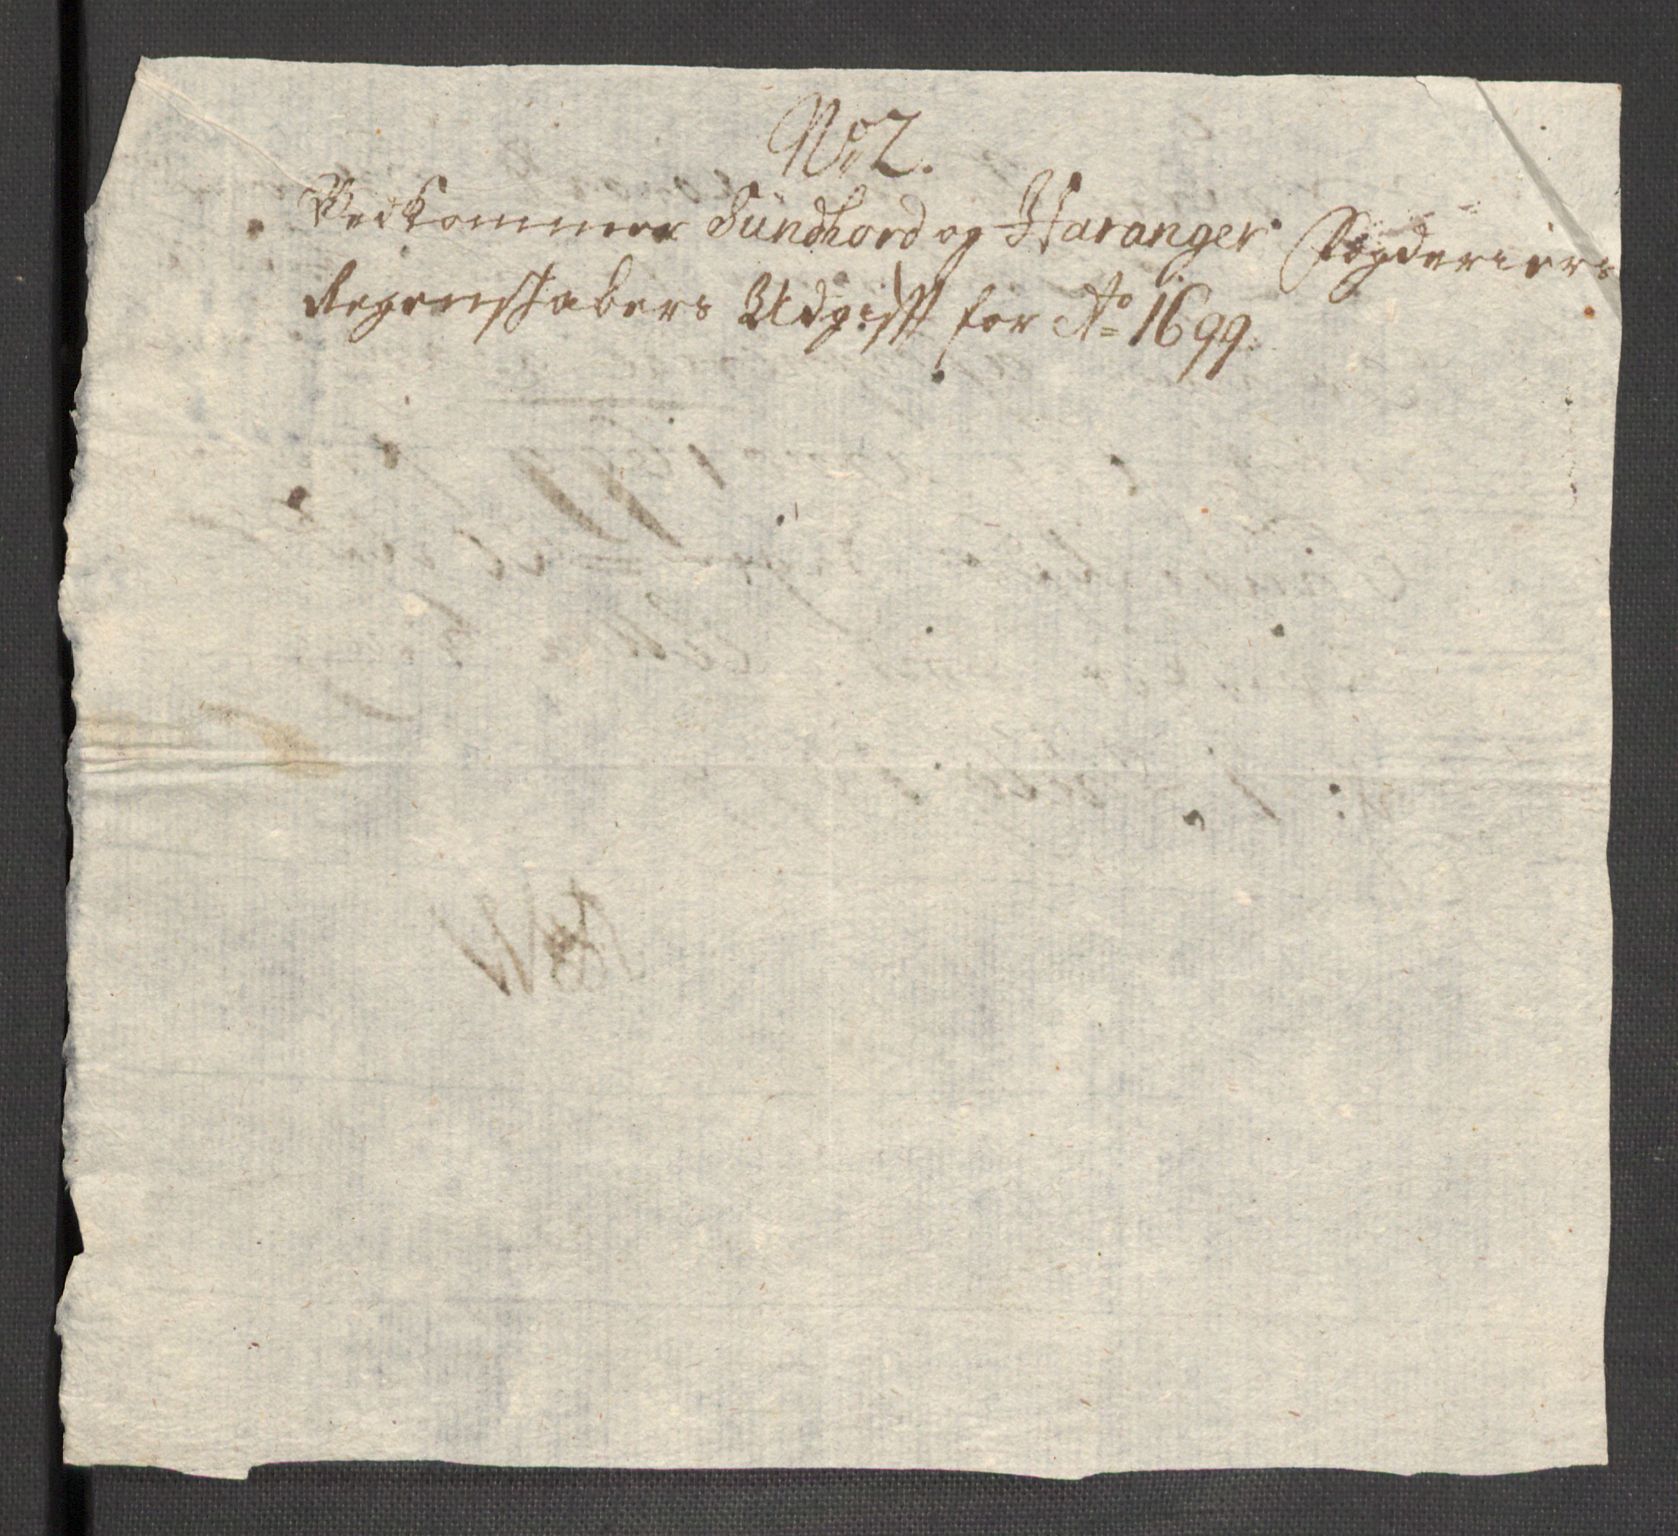 No 2.
Vedkommer Sündhord og Haranger Fogderiers
Regenskabers Udgifft for Ao 1699.